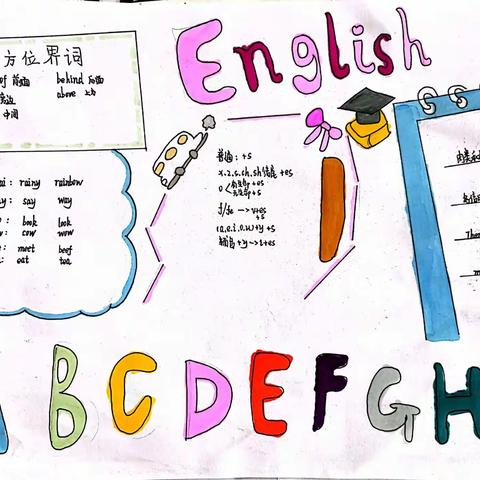 English
方位界词
of 前面 behind 后面
above
中间
ai: rainy rainbow
y: say way
: book look
w: cow wow
: meet beef
: eat tea
普通: +s
x.z.s.ch.sh结尾 +es
o 有生命+es
无生命+s
f/fe → v+es
+s
(a.e.i.o.u)+y +s
辅音+y→i+es
B C D E F G H